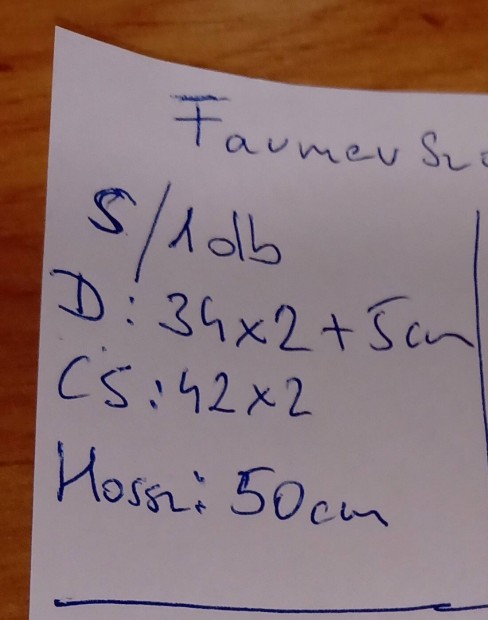 Farmer Sz
S/1 db
D: 34x2+5cm
CS: 42x2
Hossz: 50cm